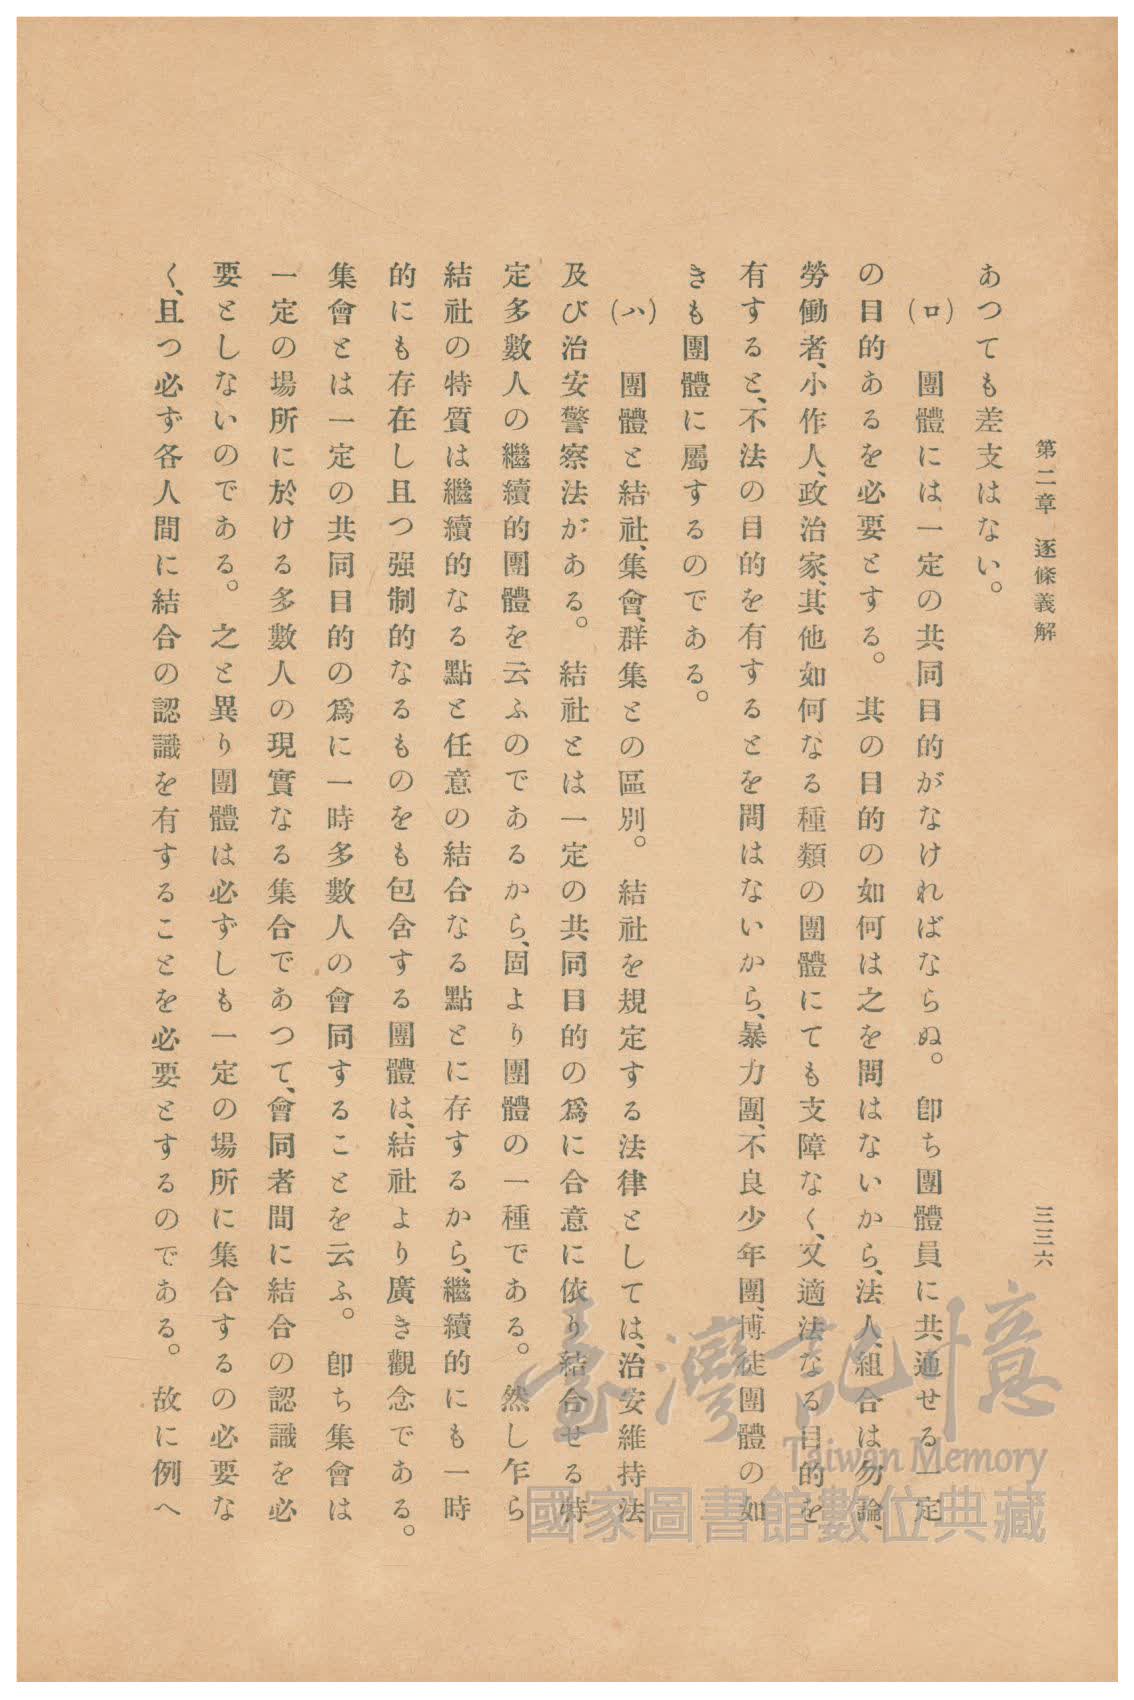 第二章　逐條義解
三三六
あつても差支はない。
(ロ)　團體には一定の共同目的がなければならぬ。　卽ち團體員に共通せる一定
の目的あるを必要とする。　其の目的の如何は之を問はないから、法人、組合は勿論、
勞働者、小作人、政治家、其他如何なる種類の團體にても支障なく、又適法なる目的を
有すると、不法の目的を有するとを問はないから、暴力團、不良少年團、博徒團體の如
きも團體に屬するのである。
(ハ)　團體と結社、集會、群集との區別。　結社を規定する法律としては、治安維持法
及び治安警察法がある。　結社とは一定の共同目的の爲に合意に依り結合せる特
定多數人の繼續的團體を云ふのであるから、固より團體の一種である。　然し乍ら
結社の特質は繼續的なる點と任意の結合なる點とに存するから、繼續的にも一時
的にも存在し且つ强制的なるものをも包含する團體は、結社より廣き觀念である。
集會とは一定の共同目的の爲に一時多數人の會同することを云ふ。　卽ち集會は
一定の場所に於ける多數人の現實なる集合であつて、會同者間に結合の認識を必
要としないのである。　之と異り團體は必ずしも一定の場所に集合するの必要な
く、且つ必ず各人間に結合の認識を有することを必要とするのである。　故に例へ
臺灣記憶
Taiwan Memory
國家圖書館數位典藏